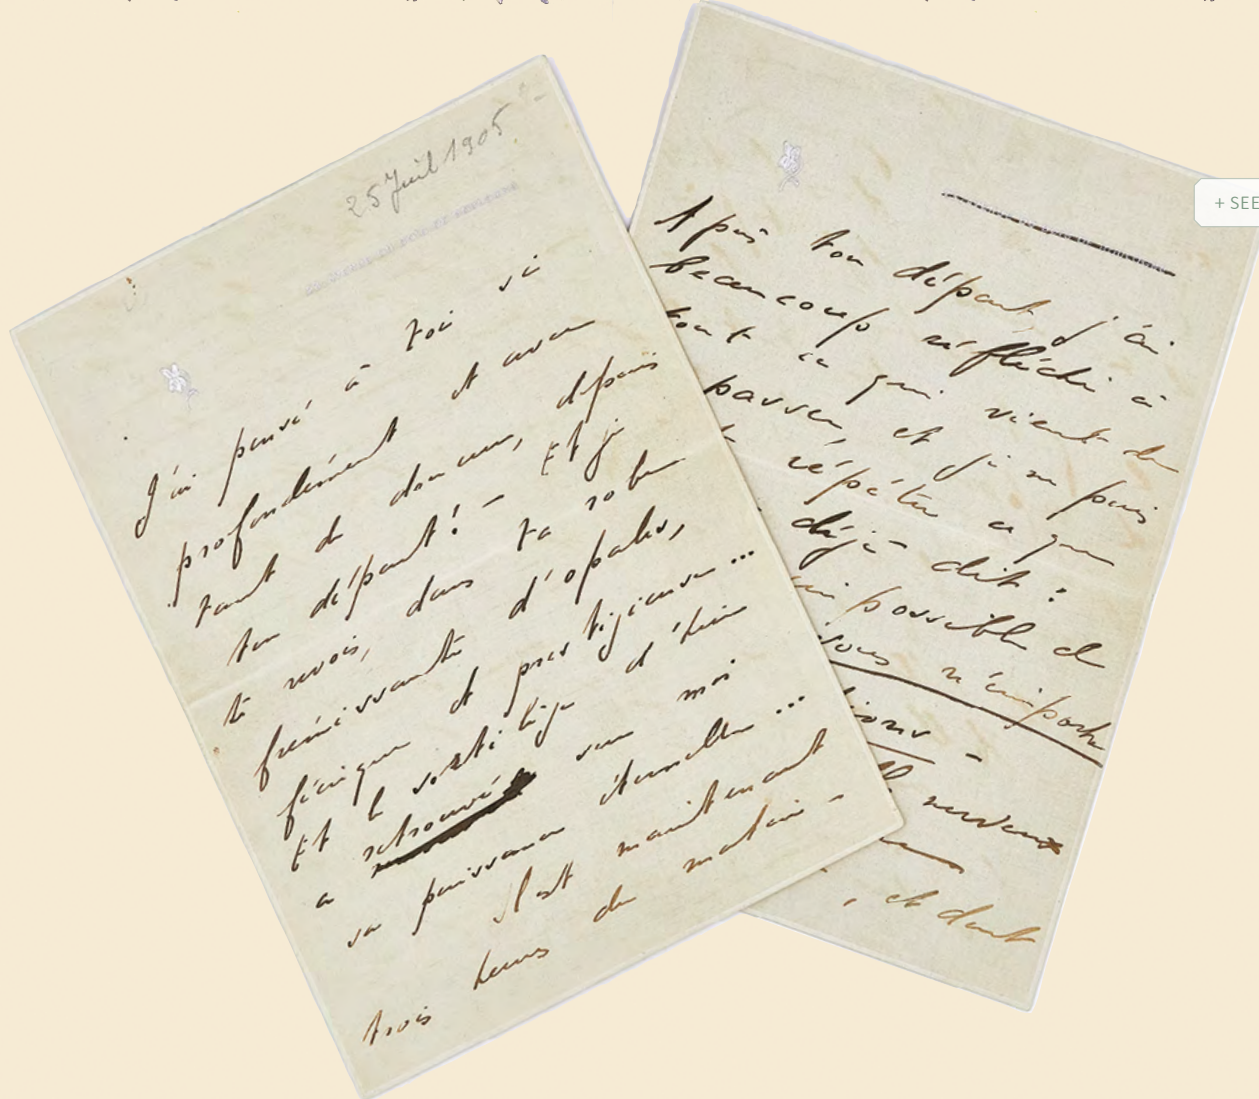 25 Juil 1905
J'ai pensé à toi si
profondément et avec
tant de douceur, depuis
ton départ! - Et je
te revois, dans ta robe
frémissante d'opales,
féerique et prestigieuse...
Et le vertige d'hier
a retrouvé sur moi
sa puissance éternelle...
Il est maintenant
trois heures du matin -
Après ton départ, j'ai
beaucoup réfléchi à
tout ce qui vient de
passer, et je ne puis
répéter ce que
déjà dit:
impossible de
vous n'importe
-
nerveux
, et dont
+ SEE